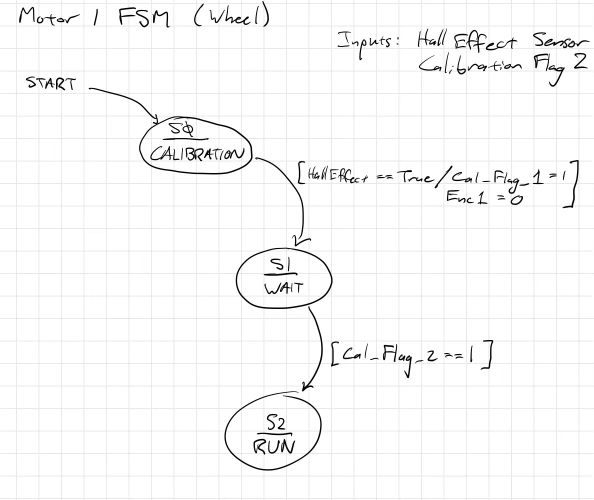 Motor 1 FSM (Wheel)
Inputs: Hall Effect Sensor
Calibration Flag 2
START
S0
CALIBRATION
[Hall Effect == True / Cal_Flag_1 = 1
Enc1 = 0]
S1
WAIT
[Cal_Flag_2 == 1]
S2
RUN